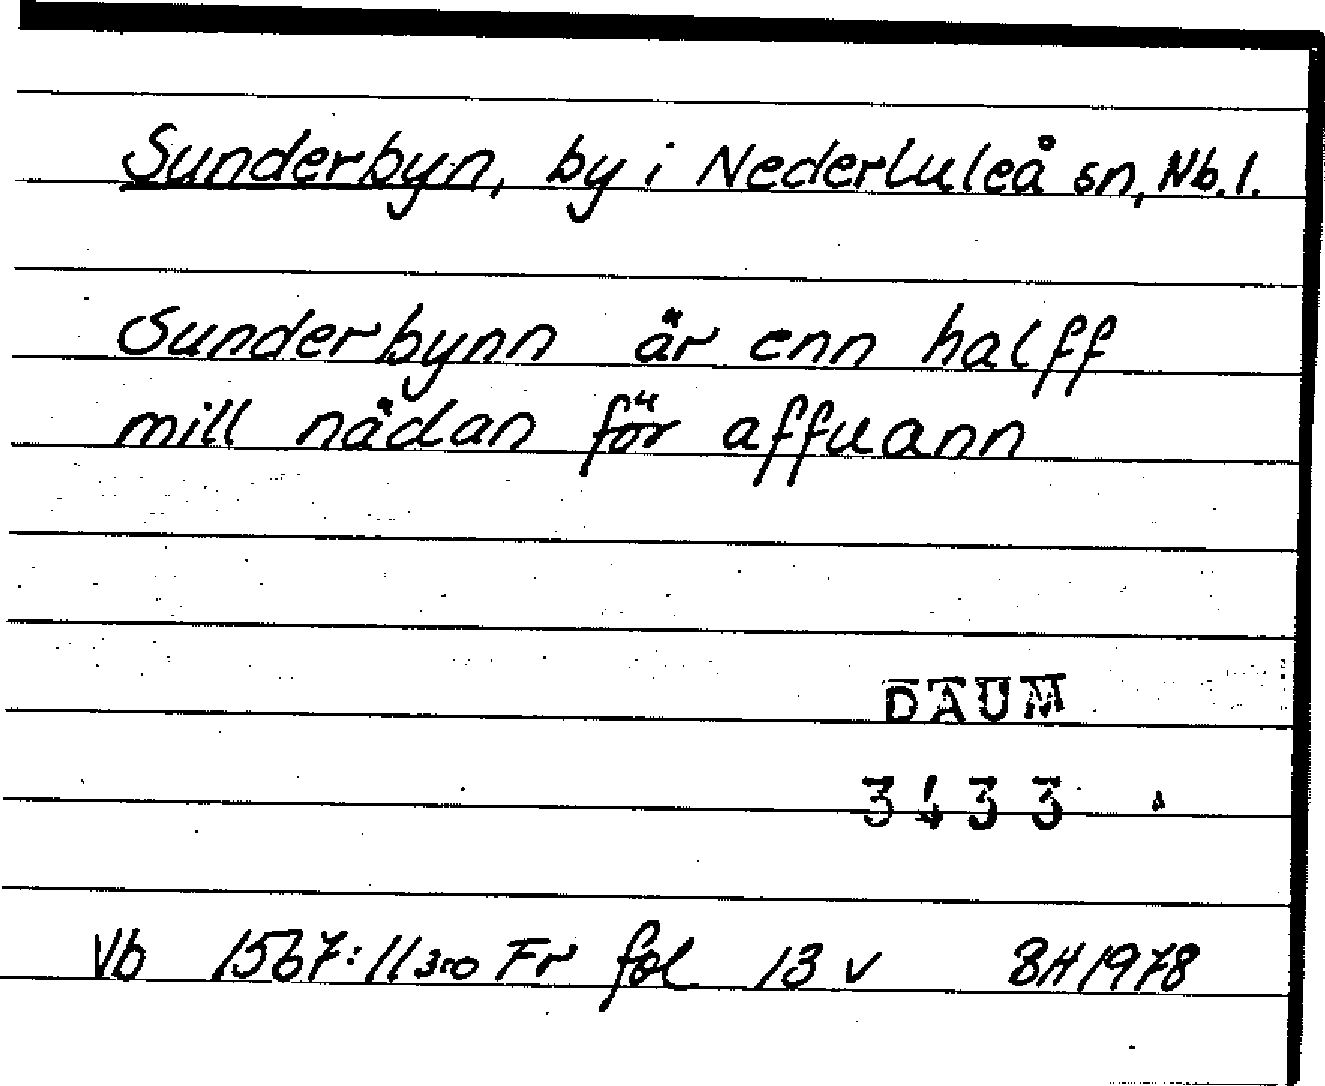 Sunderbyn, by i Nederluleå sn, Nb.l.
Sunderbynn är enn halff
mill nädan för affuann
DAUM
3433
Vb 1567: Fr fol 13 v BH 1978